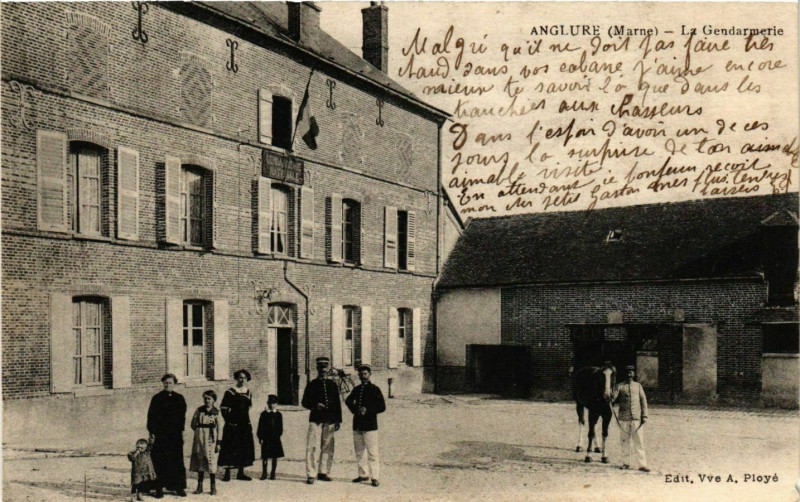 ANGLURE (Marne) - La Gendarmerie
Malgré qu'il ne doit pas faire très
chaud dans vos cabane j'aime encore
mieux te savoir là que dans les
tranchées aux chasseurs
Dans l'espoir d'avoir un de ces
jours la surprise de ton aimable
aimable visite
En attendant ce bonheur reçoit
mon cher petit Gaston mes plus tendres
baisers
GENDARMERIE
NATIONALE
Edit. Vve A. Ployé